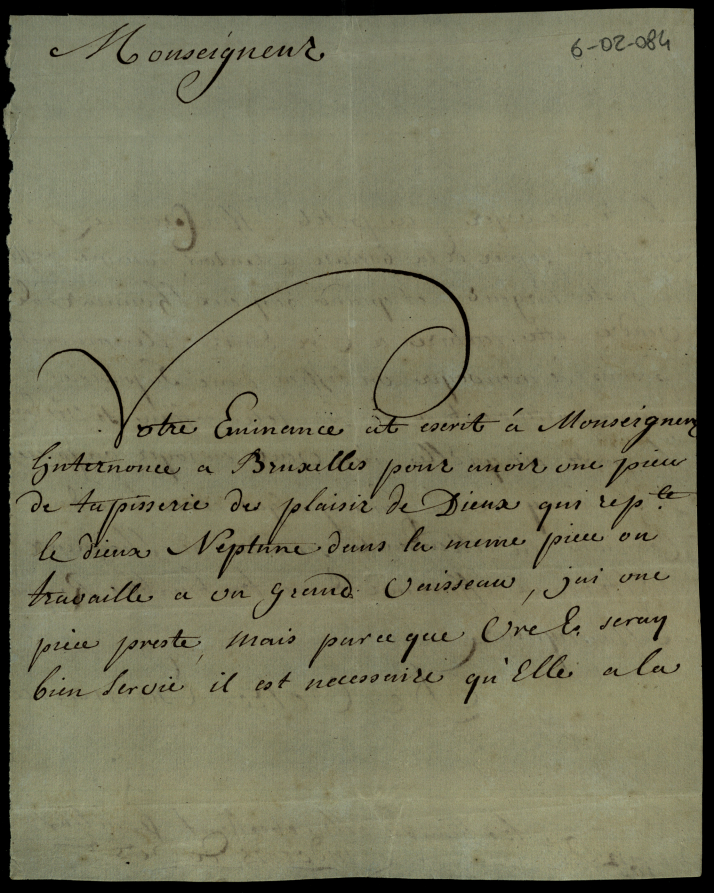 Monseigneur
6-02-084
Votre Eminance at escrit á Monseigneur
linternonce a Bruxelles pour auoir une piece
de tapisserie des plaisir de Dieux qui rep.te
le dieux Neptune dans la meme piece on
travaille a un grand Vaisseau, jai une
piece preste, mais parceque Vre E. seray
bien servie il est necessaire qu'Elle a la